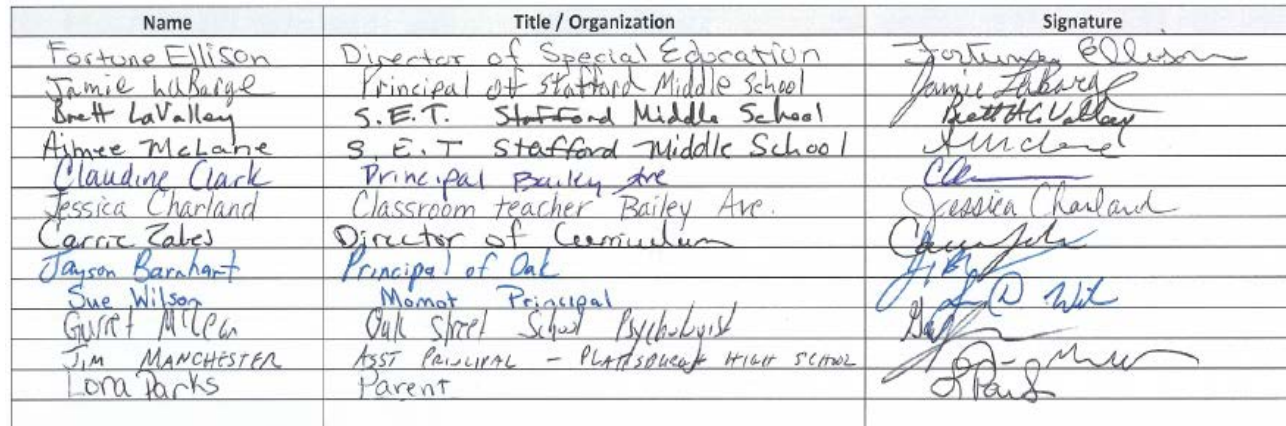 Name Title / Organization Signature
Fortune Ellison Director of Special Education Fortune Ellison
Jamie LaBarge Principal of Stafford Middle School Jamie LaBarge
Brett LaValley S.E.T. Stafford Middle School Brett LaValley
Aimee McLane S.E.T Stafford Middle School AMcLane
Claudine Clark Principal Bailey Ave
Jessica Charland Classroom teacher Bailey Ave. Jessica Charland
Carrie Zales Director of Curriculum
Jayson Barnhart Principal of Oak
Sue Wilson Momot Principal
Garret McLean Oak Street School Psychologist
JIM MANCHESTER ASST PRINCIPAL - PLATTSBURGH HIGH SCHOOL
Lora Parks Parent L Parks